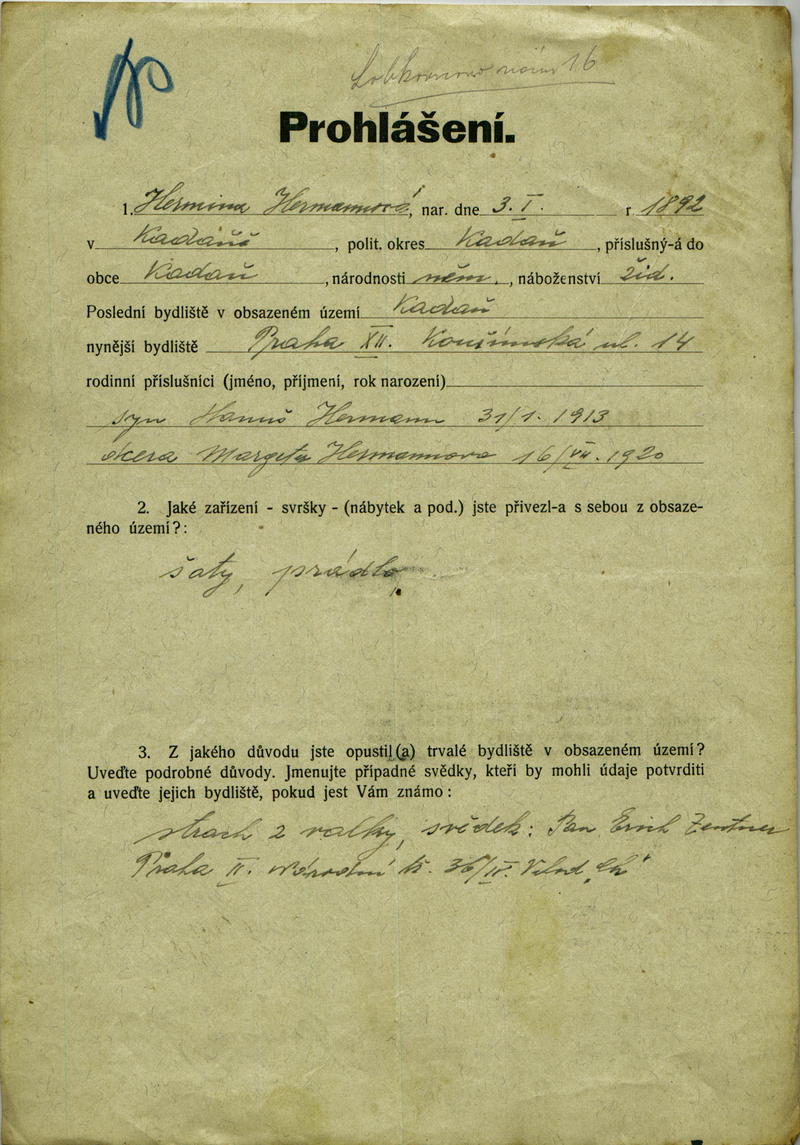 16
Prohlášení.
1. Hermina Hermannová, nar. dne 3. I. r 1892
v Kadani, polit. okres Kadaň, příslušný-á do
obce Kadaň, národnosti něm., náboženství žid.
Poslední bydliště v obsazeném území Kadaň
nynější bydliště Praha XII. Kouřimská ul. 14
rodinní příslušníci (jméno, příjmení, rok narození)
syn Hanuš Hermann 31/1. 1913
dcera Margita Hermannova 16/VII. 1920
2. Jaké zařízení - svršky - (nábytek a pod.) jste přivezl-a s sebou z obsaze-
ného území?:
šaty, prádlo
3. Z jakého důvodu jste opustil (a) trvalé bydliště v obsazeném území?
Uveďte podrobné důvody. Jmenujte případné svědky, kteří by mohli údaje potvrditi
a uveďte jejich bydliště, pokud jest Vám známo:
strach z valky, svědek: Pan Erich Zentner
Praha II. Národní tř. 36/IV.